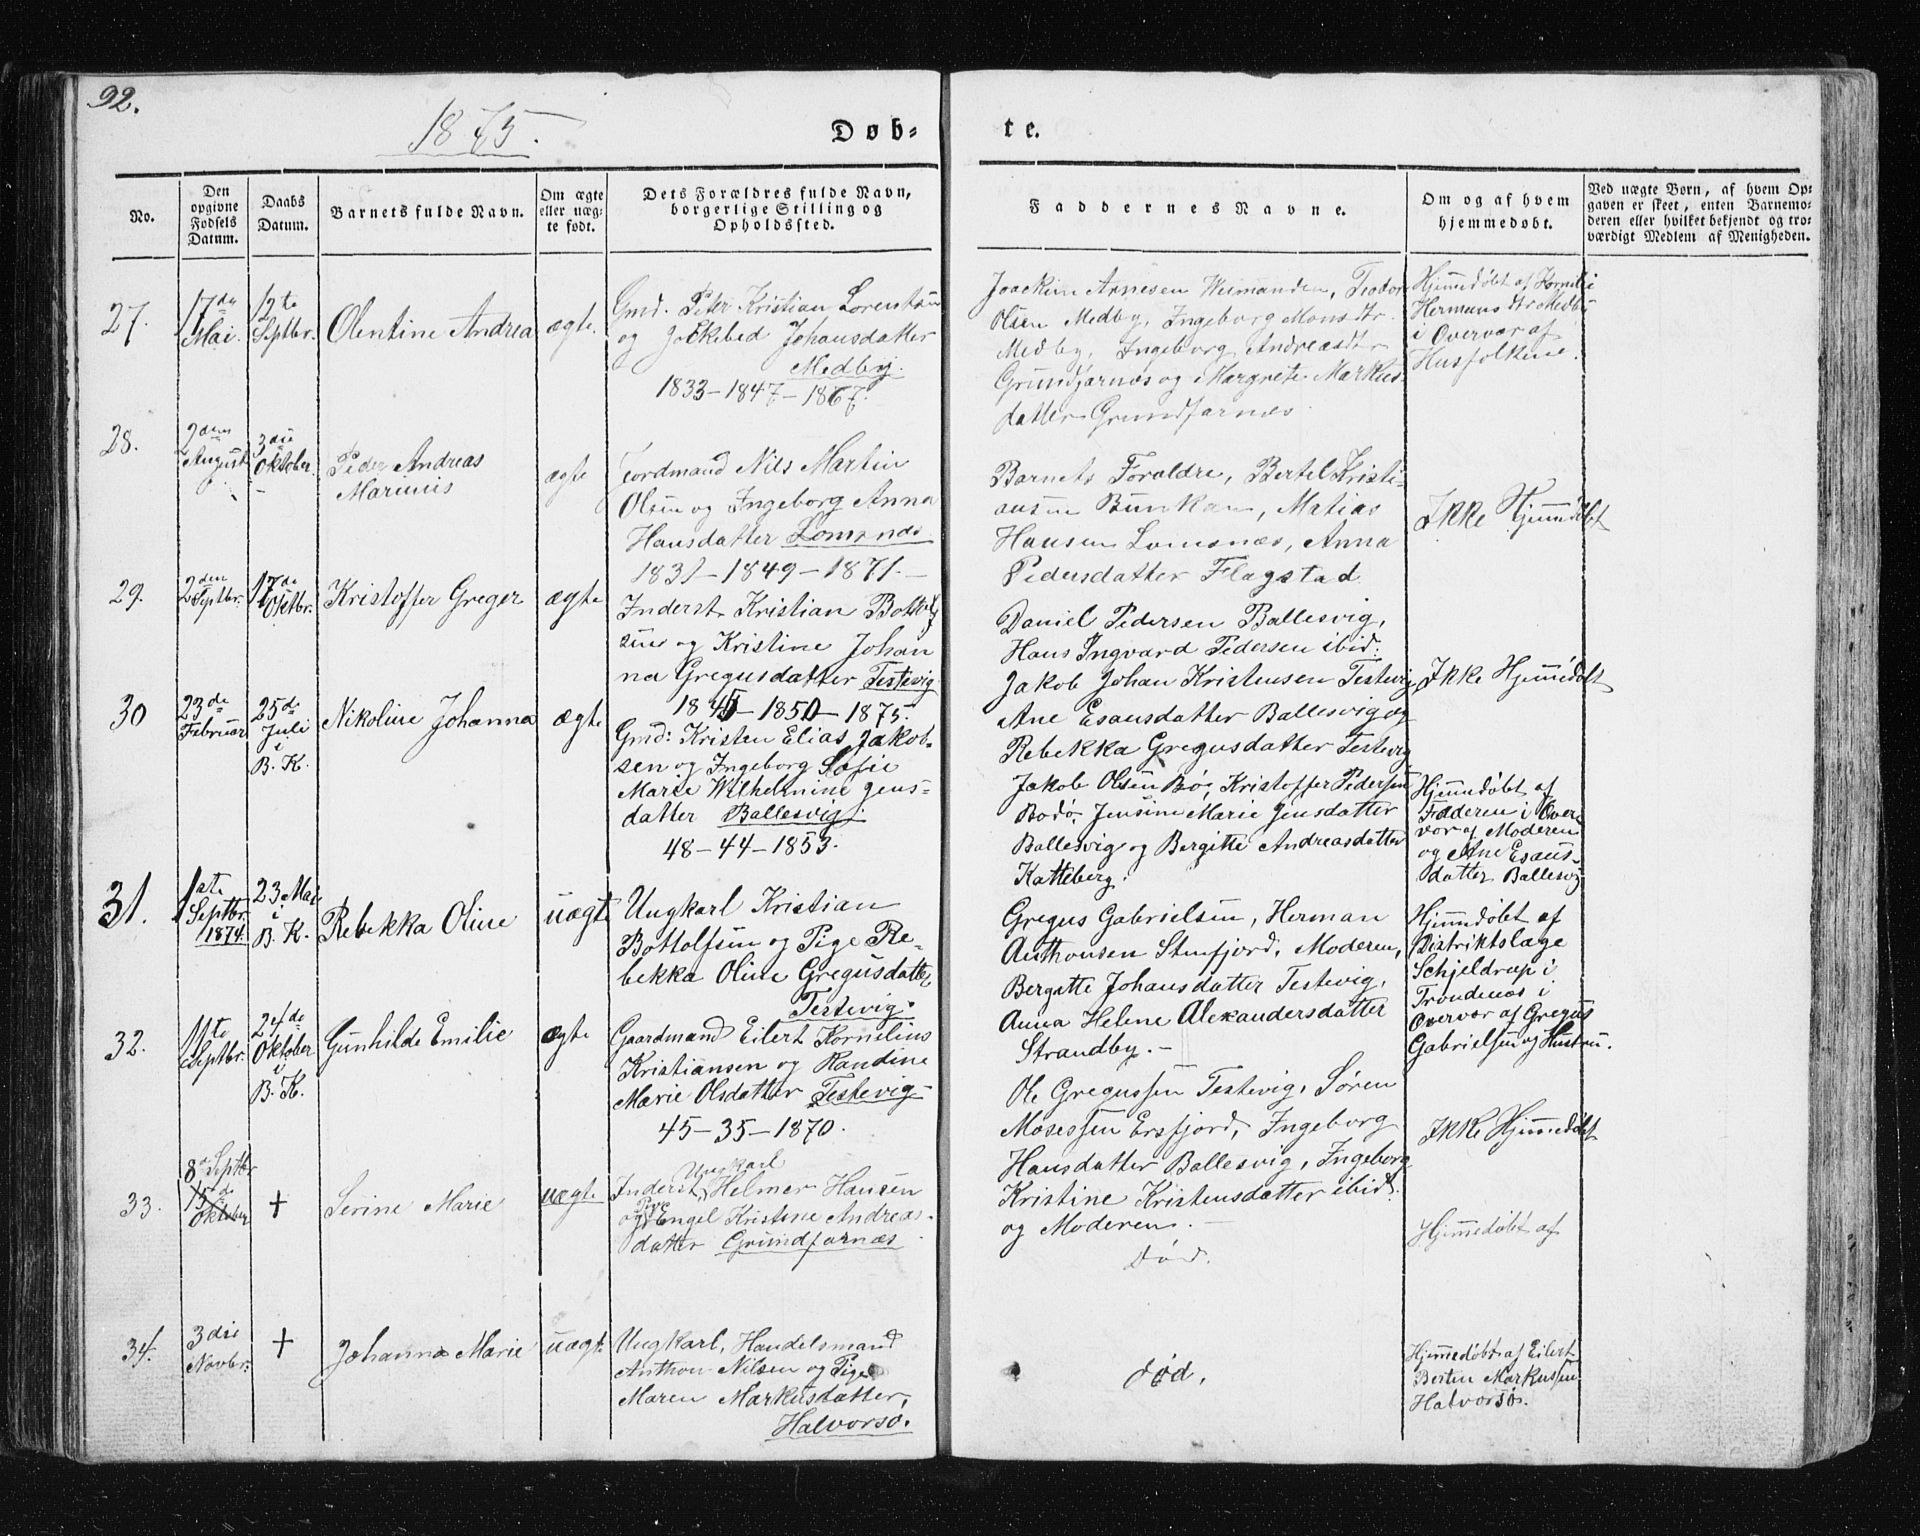 92.
1875.
Døb-
te.
No.
Den opgivne Fødsels Datum.
Daabs Datum.
Barnets fulde Navn.
Om ægte eller uæg-te født.
Dets Forældres fulde Navn, borgerlige Stilling og Opholdssted.
Faddernes Navne.
Om og af hvem hjemmedøbt.
Ved uægte Børn, af hvem Op-
gaven er skeet, enten Barnemo-
deren eller hvilket bekjendt og tro-
værdigt Medlem af Menigheden.
27.
17de
Mai
12te
Septbr.
Olentine Andrea
ægte.
Gmd. Peter Kristian Lorentsen
og Jokebed Johansdatter
Medby.
1833-1847-1867.
Joackim Arnesen Veimanden, Teodor
Olsen Medby, Ingeborg Monsdtr.
Medby, Ingeborg Andreasdtr
Grundfarnæs og Margrete Markus-
datter Grundfarnæs.
Hjemmedøbt af Kornelia
Hermansdtr Medby
i Overvær af
Husfolkene.
28.
2den
August
3die
Oktober.
Peder Andreas
Marinius
ægte
Jordmand Nils Martin
Olsen og Ingeborg Anna
Hansdatter Lomsnæs
1831-1849-1871.
Barnets Forældre, Bertel Kristi-
ansen Bunkan, Matias
Hansen Lomsnæs, Anna
Pedersdatter Flagstad.
Ikke Hjemmedøbt
29.
2den
Septbr.
17de
Oktbr.
Kristoffer Greger
ægte
Inderst Kristian Bottolf
sen og Kristine Johan
na Gregusdatter Testevig
1845-1850-1875.
Daniel Pedersen Ballesvig,
Hans Ingvard Pedersen ibid:
Jakob Johan Kristensen Testevig
Ane Esausdatter Ballesvig og
Rebekka Gregusdatter Testevig
Ikke Hjemmedøbt
30
23de
Februar
25de
Juli
i
B. K.
Nikoline Johanna
ægte
Gmd: Kristen Elias Jakob-
sen og Ingeborg Sofie
Marie Wilhelmine Jens-
datter Ballesvig.
48-44-1853.
Jakob Olsen Bø, Kristoffer Pedersen
Bodø, Jensine Marie Jensdatter
Ballesvig og Bergitte Andreasdatter
Katteberg.
Hjemmedøbt af
Faderen i Over
vær af Moderen
og Ane Esaus-
datter Ballesvig
31.
1ste
Septbr.
1874.
23 Mai
i
B. K.
Rebekka Oline
uægte
Ungkarl Kristian
Bottolfsen og Pige Re-
bekka Oline Gregusdatter
Testevig.
Gregus Gabrielsen, Herman
Anthonsen Stenfjord, Moderen,
Bergitte Johansdatter Testevig,
Anna Helene Alexandersdatter
Strandby.
Hjemmedøbt af
Distriktslæge
Schjeldrup i
Trondenæs i
Overvær af Gregus
Gabrielsen og Hustru.
32.
11te
Septbr.
24de
Oktober
i
B. K.
Gunhilde Emilie
ægte
Gaardmand Eilert Kornelius
Kristiansen og Randine
Marie Olsdatter Testevig
45-35-1870.
Ole Gregussen Testevig, Søren
Mosessen Ersfjord, Ingeborg
Hansdatter Ballesvig, Ingeborg
Kristine Kristensdatter ibid.
og Moderen.
Ikke Hjemmedøbt
33.
8de Septbr
15de
Oktober
+
Serine Marie
uægte
Ungkarl
Inderst Helmer Hansen
Pige
og Engel Kristine Andreas-
datter Grundfarnæs
Død.
Hjemmedøbt af
34.
3die
Novbr.
+
Johanna Marie
uægte
Ungkarl, Handelsmand
Anthon Nilsen og Pige
Maren Markusdatter,
Halvorsø.
død,
Hjemmedøbt af Eilert
Bertin Markussen
Halvorsø.